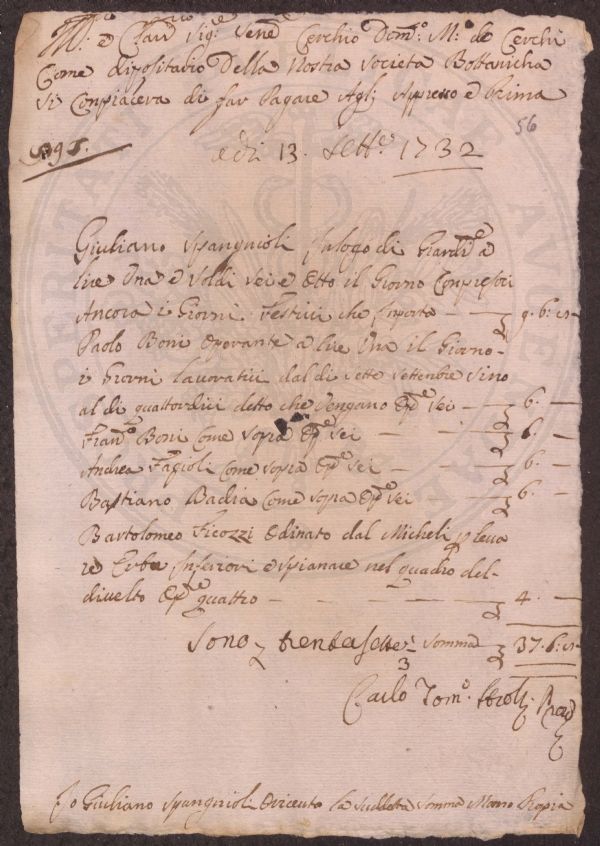 Ill.e e Clar. Sig.e Sen.e Cerchio Dom.o M.o de Cerchi
Come dipositario Della Nostra Societa Bottanicha
Si Conpiacera di far Pagare Agl'j Appresso e Prima
56
595.
adi 13. Sette. 1732
Giuliano Spangnioli in logo di Giardi.e a
lire Una e Soldi Sei e Otto il Giorno Conpresovi
Ancora i Giorni Festivi che Inporta — 9. 6:
Paolo Boni Oporante a lire Una il Giorno
i Giorni lavorativi dal di sette Settenbre Sino
al di quattordici detto che Vengano Op.e Sei — 6. —
Fran.co Boni Come Sopra Op.e Sei — 6. —
Andrea Fagioli Come Sopra Op.e Sei — 6. —
Bastiano Badia Come Sopra Op.e Sei — 6. —
Bartolomeo Ficozzi Odinato dal Micheli p leva
re Erbe Inferiori e Spianare nel quadro del
divelto Op.e quattro — 4. —
Sono trentasette Somma 37. 6:
Carlo Tom.o
Io Giuliano Spangnioli O riceuto la Suddeta Somma Mano Propia